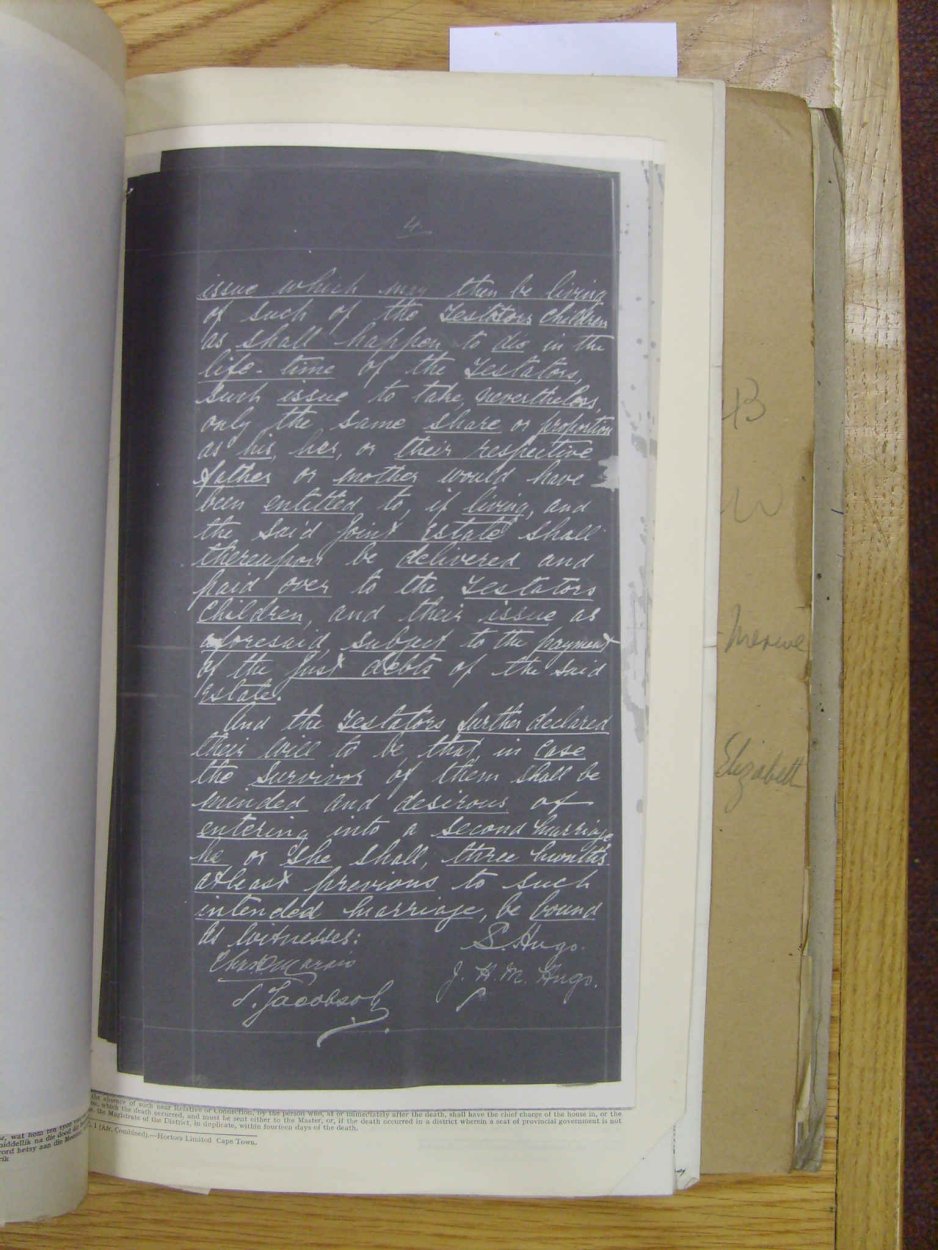 4
issue which may then be living
of such of the Testators children
as shall happen to die in the
life-time of the Testators,
such issue to take nevertheless,
only the same share or proportion
as his, her, or their respective
father or mother would have
been entitled to, if living, and
the said joint Estate shall
thereupon be delivered and
paid over to the Testators
Children, and their issue as
aforesaid, subject to the payment
of the just debts of the said
Estate.
And the Testators further declared
their will to be that, in case
the Survivor of them shall be
minded and desirous of
entering into a second marriage,
he or she shall, three months
atleast previous to such
intended marriage, be bound
as witnesses:
S. Hugo.
J. H. M. Hugo.
S. Jacobsoh
B
Merwe
Elizabeth
the absence of such near Relative or Connection, by the person who, at or immediately after the death, shall have the chief charge of the house in, or the
which the death occurred, and must be sent either to the Master, or, if the death occurred in a district wherein a seat of provincial government is not
the Magistrate of the District, in duplicate, within fourteen days of the death.
1 [Afr. Combined].—Hortors Limited Cape Town.